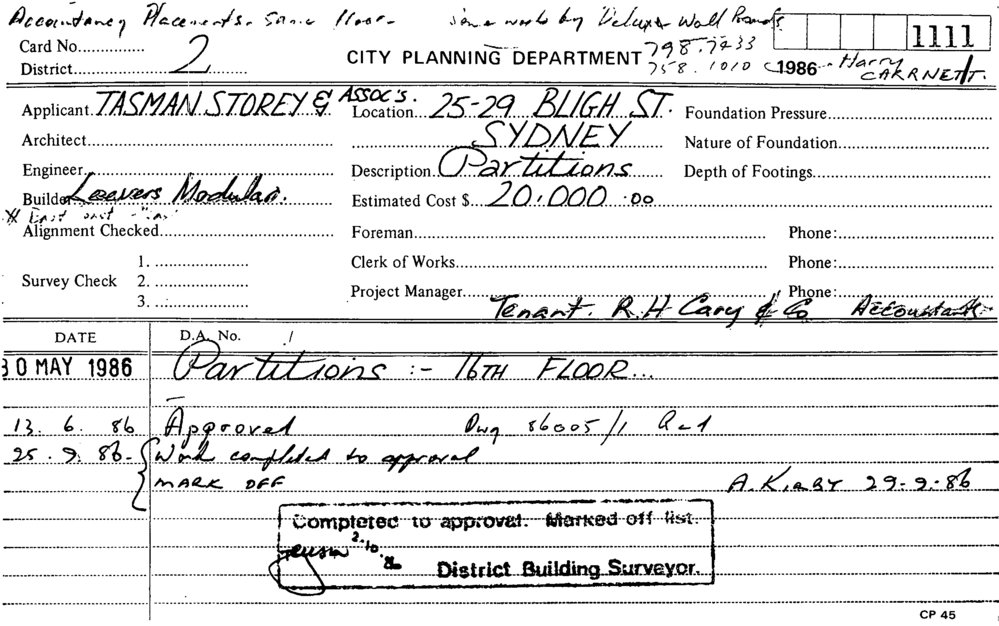 Accountancy Placements. Same floor. some works by Deluxe Wall
Card No..............
District............2..........
CITY PLANNING DEPARTMENT
798.7433
758.1010
1986
1111
Harry
CARRNETT.
Applicant TASMAN STOREY & ASSOC'S.
Location 25-29 BLIGH ST.
SYDNEY
Foundation Pressure
Architect
Nature of Foundation
Engineer
Description Partitions
Depth of Footings
Builder Leavers Modular.
Estimated Cost $ 20,000.00
Alignment Checked
Foreman
Phone:
Survey Check 1.
2.
3.
Clerk of Works
Phone:
Project Manager
Phone:
Tenant. R.H Cary & Co Accountants
DATE
D.A. No. /
30 MAY 1986 Partitions :- 16TH FLOOR...
13. 6. 86 Approved Dwg 86005/1
25.9.86- Work completed to approval
MARK OFF A. KIRBY 29-9-86
Completed to approval. Marked off list.
2.10.86
District Building Surveyor.
CP 45